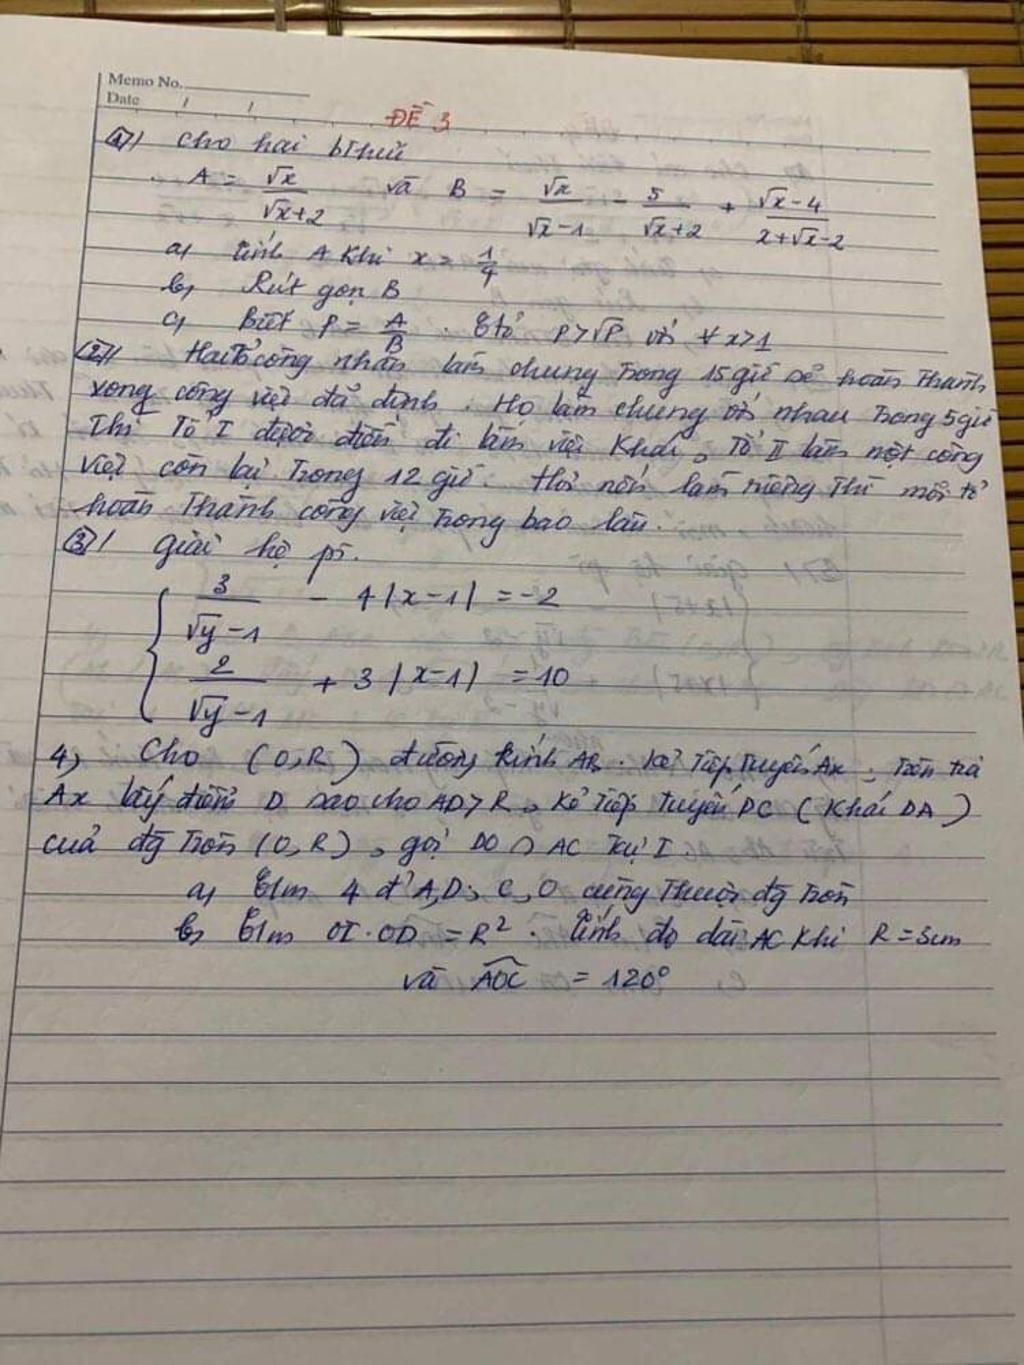 Memo No.
Date / /
ĐỀ 3
1) Cho hai bthức
A = √x/(√x+2) và B = √x/(√x-1) - 5/(√x+2) + (√x-4)/(x+√x-2)
a, tính A khi x = 1/4
b, Rút gọn B
c, Biết P = A/B. P > √P với ∀ x>1
2) Hai tổ công nhân làm chung trong 15 giờ sẽ hoàn thành
xong công việc đã định. Họ làm chung với nhau trong 5 giờ
thì tổ I được điều đi làm việc khác, tổ II làm nốt công
việc còn lại trong 12 giờ. Hỏi nếu làm riêng thì mỗi tổ
hoàn thành công việc trong bao lâu.
3) Giải hệ pt.
3/(√y-1) - 4|x-1| = -2
2/(√y-1) + 3|x-1| = 10
4, Cho (O,R) đường kính AB. Kẻ tiếp tuyến Ax, trên tia
Ax lấy điểm D sao cho AD > R, kẻ tiếp tuyến DC (khác DA)
của đg tròn (O,R), gọi DO ∩ AC tại I.
a, 4 đ' A, D, C, O cùng thuộc đg tròn
b, OI.OD = R². Tính độ dài AC khi R = 3cm
và AOC = 120°